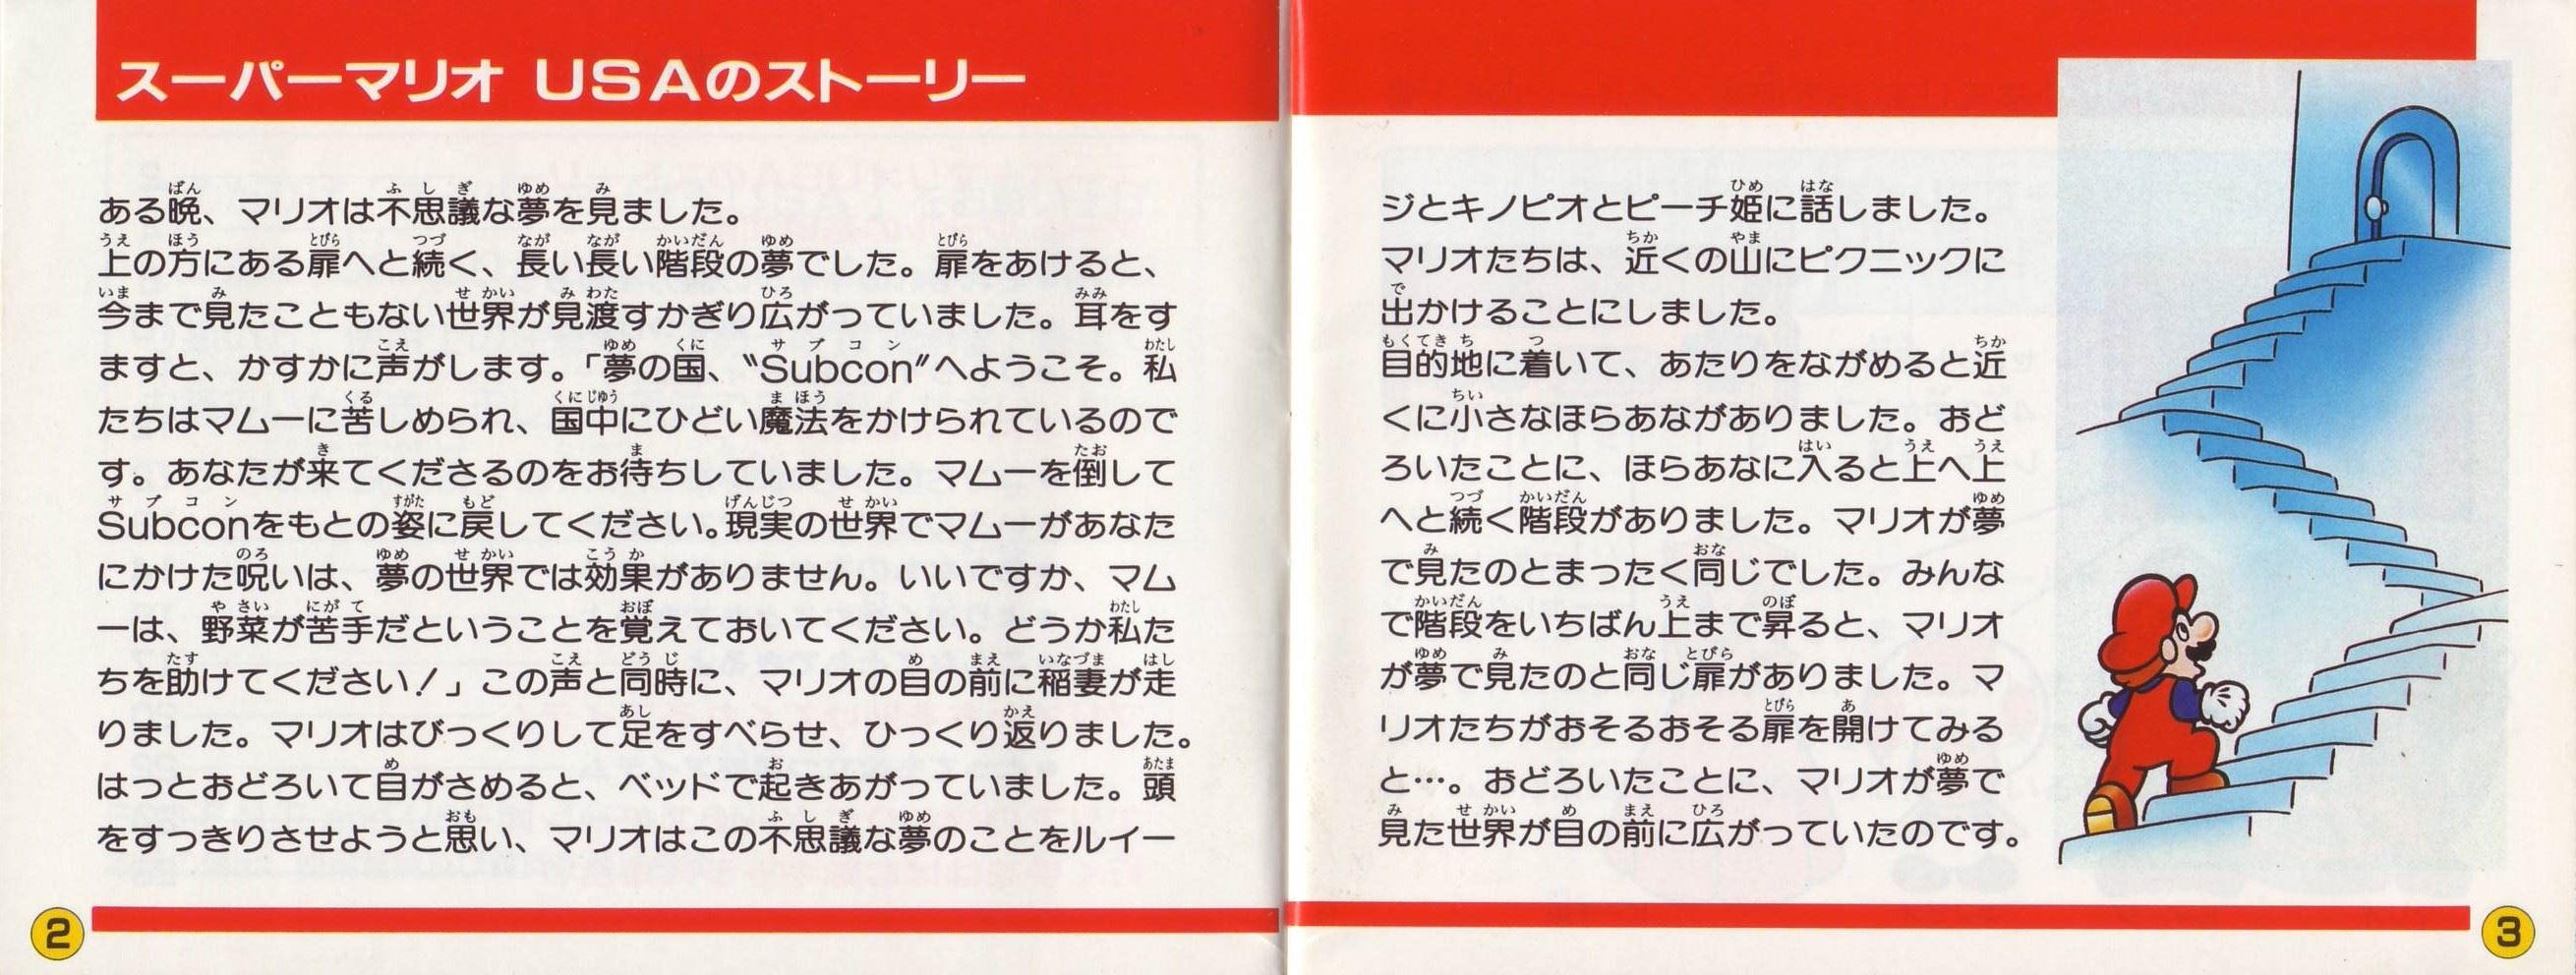 スーパーマリオ USAのストーリー
ある晩、マリオは不思議な夢を見ました。
上の方にある扉へと続く、長い長い階段の夢でした。扉をあけると、
今まで見たこともない世界が見渡すかぎり広がっていました。耳をす
ますと、かすかに声がします。「夢の国、〝Subcon〞へようこそ。私
たちはマムーに苦しめられ、国中にひどい魔法をかけられているので
す。あなたが来てくださるのをお待ちしていました。マムーを倒して
Subconをもとの姿に戻してください。現実の世界でマムーがあなた
にかけた呪いは、夢の世界では効果がありません。いいですか、マム
ーは、野菜が苦手だということを覚えておいてください。どうか私た
ちを助けてください!」この声と同時に、マリオの目の前に稲妻が走
りました。マリオはびっくりして足をすべらせ、ひっくり返りました。
はっとおどろいて目がさめると、ベッドで起きあがっていました。頭
をすっきりさせようと思い、マリオはこの不思議な夢のことをルイー
2
ジとキノピオとピーチ姫に話しました。
マリオたちは、近くの山にピクニックに
出かけることにしました。
目的地に着いて、あたりをながめると近
くに小さなほらあながありました。おど
ろいたことに、ほらあなに入ると上へ上
へと続く階段がありました。マリオが夢
で見たのとまったく同じでした。みんな
で階段をいちばん上まで昇ると、マリオ
が夢で見たのと同じ扉がありました。マ
リオたちがおそるおそる扉を開けてみる
と…。おどろいたことに、マリオが夢で
見た世界が目の前に広がっていたのです。
3